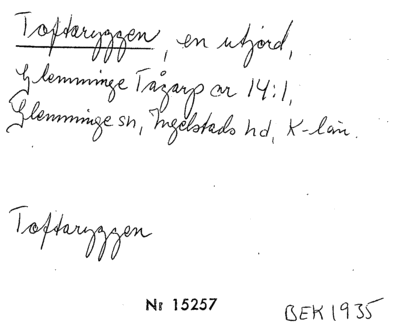 Toftaryggen, en utjord,
Glemminge Tågarp nr 14:1,
Glemminge sn, Ingelstads hd, K-län.
Toftaryggen
Nr 15257
BEK 1935